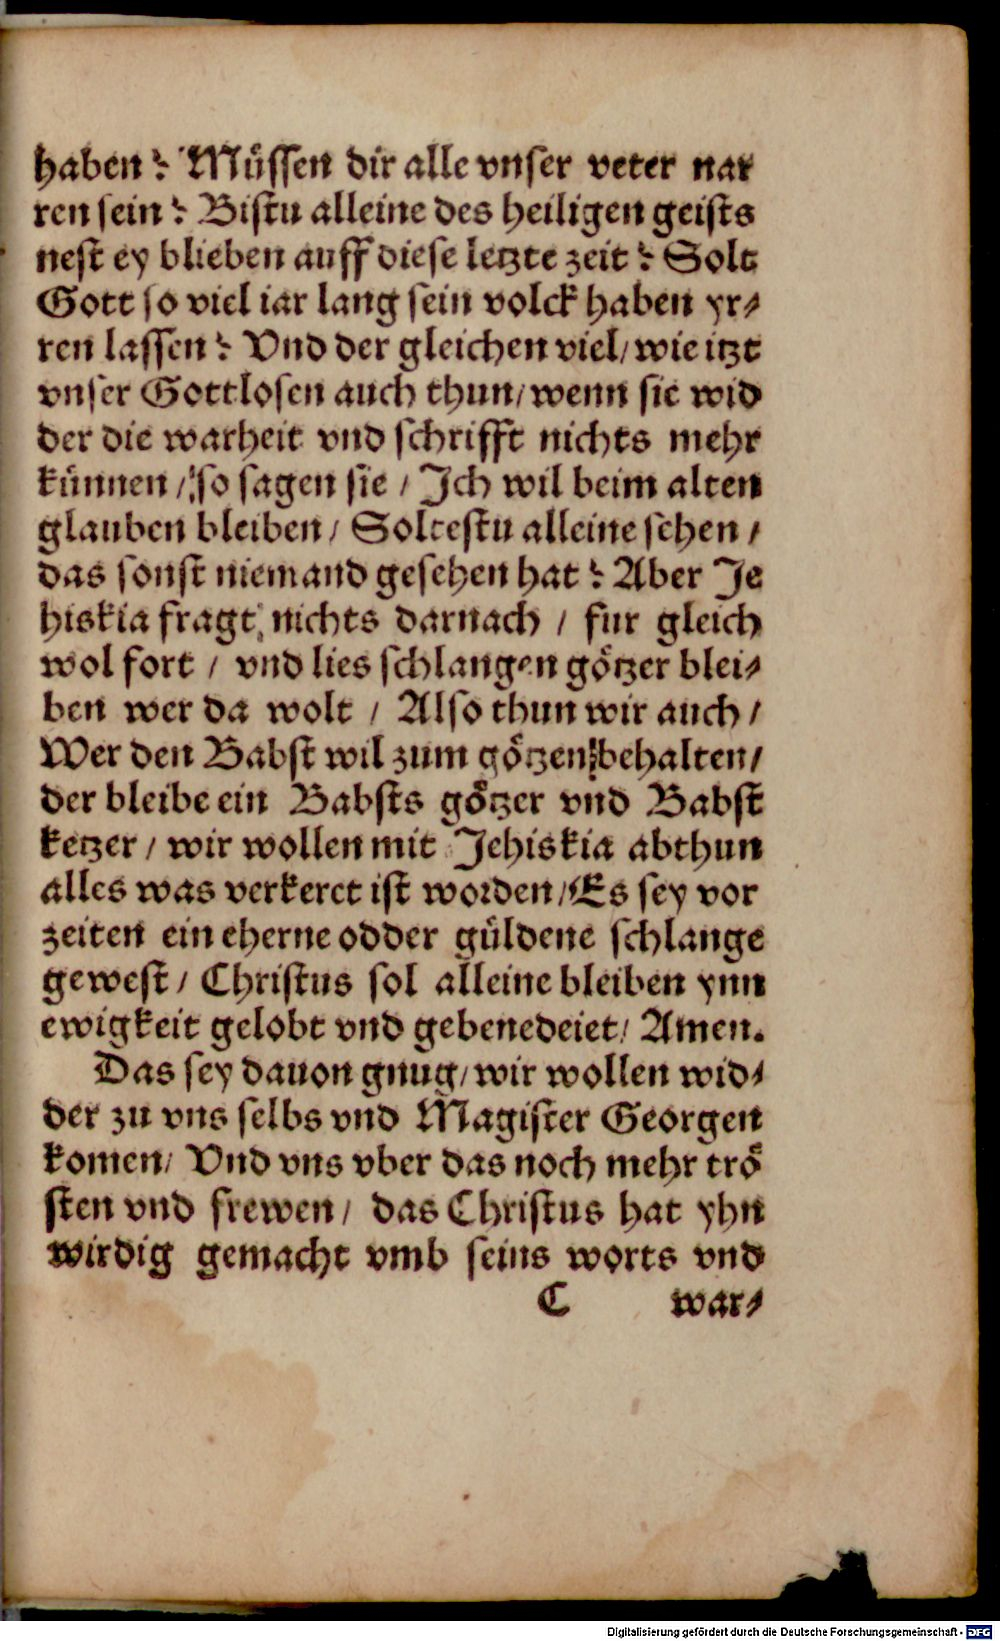 haben? Müssen dir alle vnser veter nar
ren sein? Bistu alleine des heiligen geists
nest ey blieben auff diese letzte zeit? Solt
Gott so viel iar lang sein volck haben yr⸗
ren lassen? Vnd der gleichen viel/ wie itzt
vnser Gottlosen auch thun/ wenn sie wid
der die warheit vnd schrifft nichts mehr
künnen / so sagen sie / Ich wil beim alten
glauben bleiben / Soltestu alleine sehen /
das sonst niemand gesehen hat? Aber Je
hiskia fragt nichts darnach / fur gleich
wol fort / vnd lies schlangen götzer blei⸗
ben wer da wolt / Also thun wir auch /
Wer den Babst wil zum götzen behalten/
der bleibe ein Babsts götzer vnd Babst
ketzer / wir wollen mit Jehiskia abthun
alles was verkeret ist worden / Es sey vor
zeiten ein eherne odder güldene schlange
gewest / Christus sol alleine bleiben ynn
ewigkeit gelobt vnd gebenedeiet / Amen.
Das sey dauon gnug / wir wollen wid⸗
der zu vns selbs vnd Magister Georgen
komen / Vnd vns vber das noch mehr trö
sten vnd frewen / das Christus hat yhn
wirdig gemacht vmb seins worts vnd
C war⸗
Digitalisierung gefördert durch die Deutsche Forschungsgemeinschaft - DFG